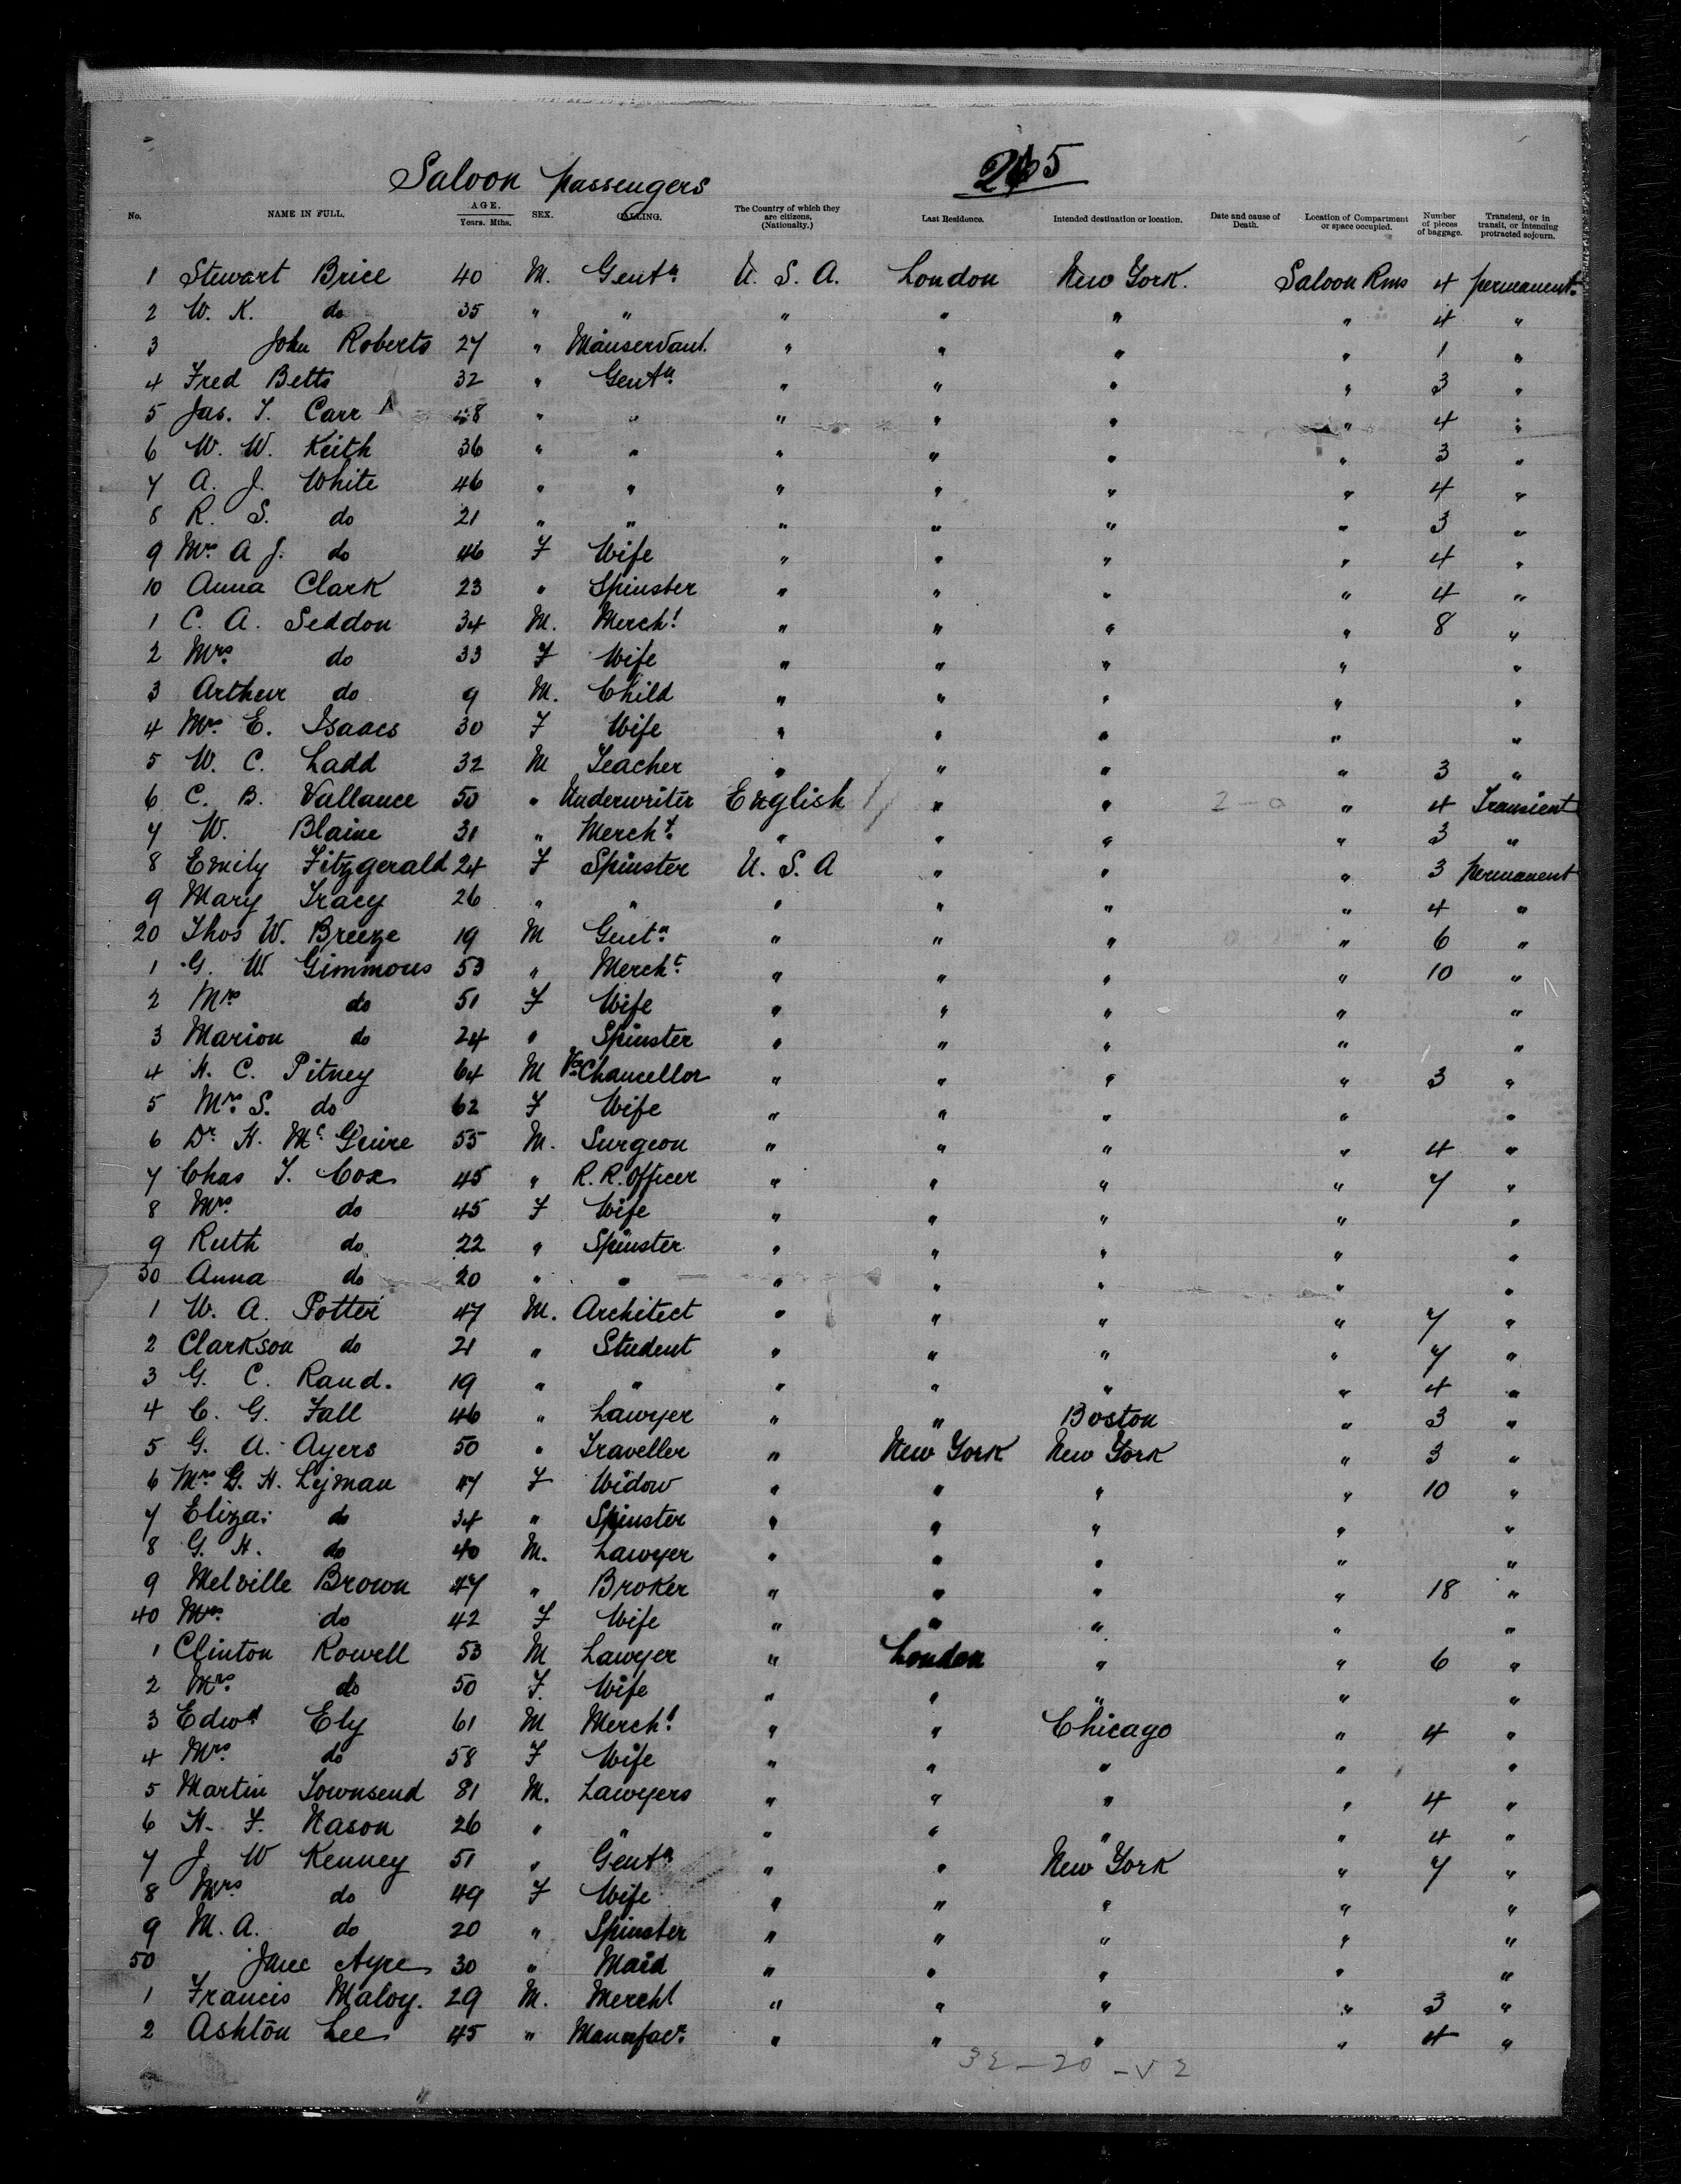 Saloon passengers 265
No. NAME IN FULL. AGE. Years. Mths. SEX. CALLING. The Country of which they are citizens. (Nationalty.) Last Residence. Intended destination or location. Date and cause of Death. Location of Compartment or space occupied. Number of pieces of baggage. Transient, or in transit, or intending protracted sojourn.
1 Stewart Brice 40 M. Gentn U. S. A. London New York. Saloon Rms 4 permanent
2 W. K. do 35 " " " " " " 4 "
3 John Roberts 27 " Manservant. " " " " 1 "
4 Fred Betts 32 " Gentn " " " " 3 "
5 Jas. T. Carr 48 " " " " " " 4 "
6 W. W. Keith 36 " " " " " " 3 "
7 A. J. White 46 " " " " " " 4 "
8 R. S. do 21 " " " " " " 3 "
9 Mrs A J. do 46 F Wife " " " " 4 "
10 Anna Clark 23 " Spinster " " " " 4 "
1 C. A. Seddon 34 M. Mercht " " " " 8 "
2 Mrs do 33 F Wife " " " " "
3 Arthur do 9 M. Child " " " " "
4 Mrs E. Isaacs 30 F Wife " " " " "
5 W. C. Ladd 32 M Teacher " " " " 3 "
6 C. B. Vallance 50 " Underwriter English " " 2-0 " 4 Transient
7 W. Blaine 31 " Mercht " " " " 3 "
8 Emily Fitzgerald 24 F Spinster U. S. A " " " 3 permanent
9 Mary Tracy 26 " " " " " " 4 "
20 Thos W. Breeze 19 M Gentn " " " " 6 "
1 G. W. Gimmons 53 " Mercht " " " " 10 "
2 Mrs do 51 F Wife " " " " "
3 Marion do 24 " Spinster " " " " "
4 H. C. Pitney 64 M Vce Chancellor " " " " 3 "
5 Mrs S. do 62 F Wife " " " " "
6 Dr H. Mc Guire 55 M. Surgeon " " " " 4 "
7 Chas T. Cox 45 " R. R. Officer " " " " 7 "
8 Mrs do 45 F Wife " " " " "
9 Ruth do 22 " Spinster " " " " "
30 Anna do 20 " " " " " " "
1 W. A. Potter 47 M. Architect " " " " 7 "
2 Clarkson do 21 " Student " " " " 7 "
3 G. C. Rand. 19 " " " " " " 4 "
4 C. G. Fall 46 " Lawyer " " Boston " 3 "
5 G. A. Ayers 50 " Traveller " New York New York " 3 "
6 Mrs G. H. Lyman 47 F Widow " " " " 10 "
7 Eliza: do 34 " Spinster " " " " "
8 G. H. do 40 M. Lawyer " " " " "
9 Melville Brown 47 " Broker " " " " 18 "
40 Mrs do 42 F Wife " " " " "
1 Clinton Rowell 53 M Lawyer " London " " 6 "
2 Mrs do 50 F. Wife " " " " "
3 Edwd Ely 61 M Mercht " " Chicago " 4 "
4 Mrs do 58 F Wife " " " " "
5 Martin Townsend 81 M. Lawyers " " " " 4 "
6 H. F. Nason 26 " " " " " " 4 "
7 J. W Kenney 51 " Gentn " " New York " 7 "
8 Mrs do 49 F Wife " " " " "
9 M. A. do 20 " Spinster " " " " "
50 Jane Ayre 30 " Maid " " " " "
1 Francis Maloy. 29 M. Mercht " " " " 3 "
2 Ashton Lee 45 " Manufacr " " " " 4 "